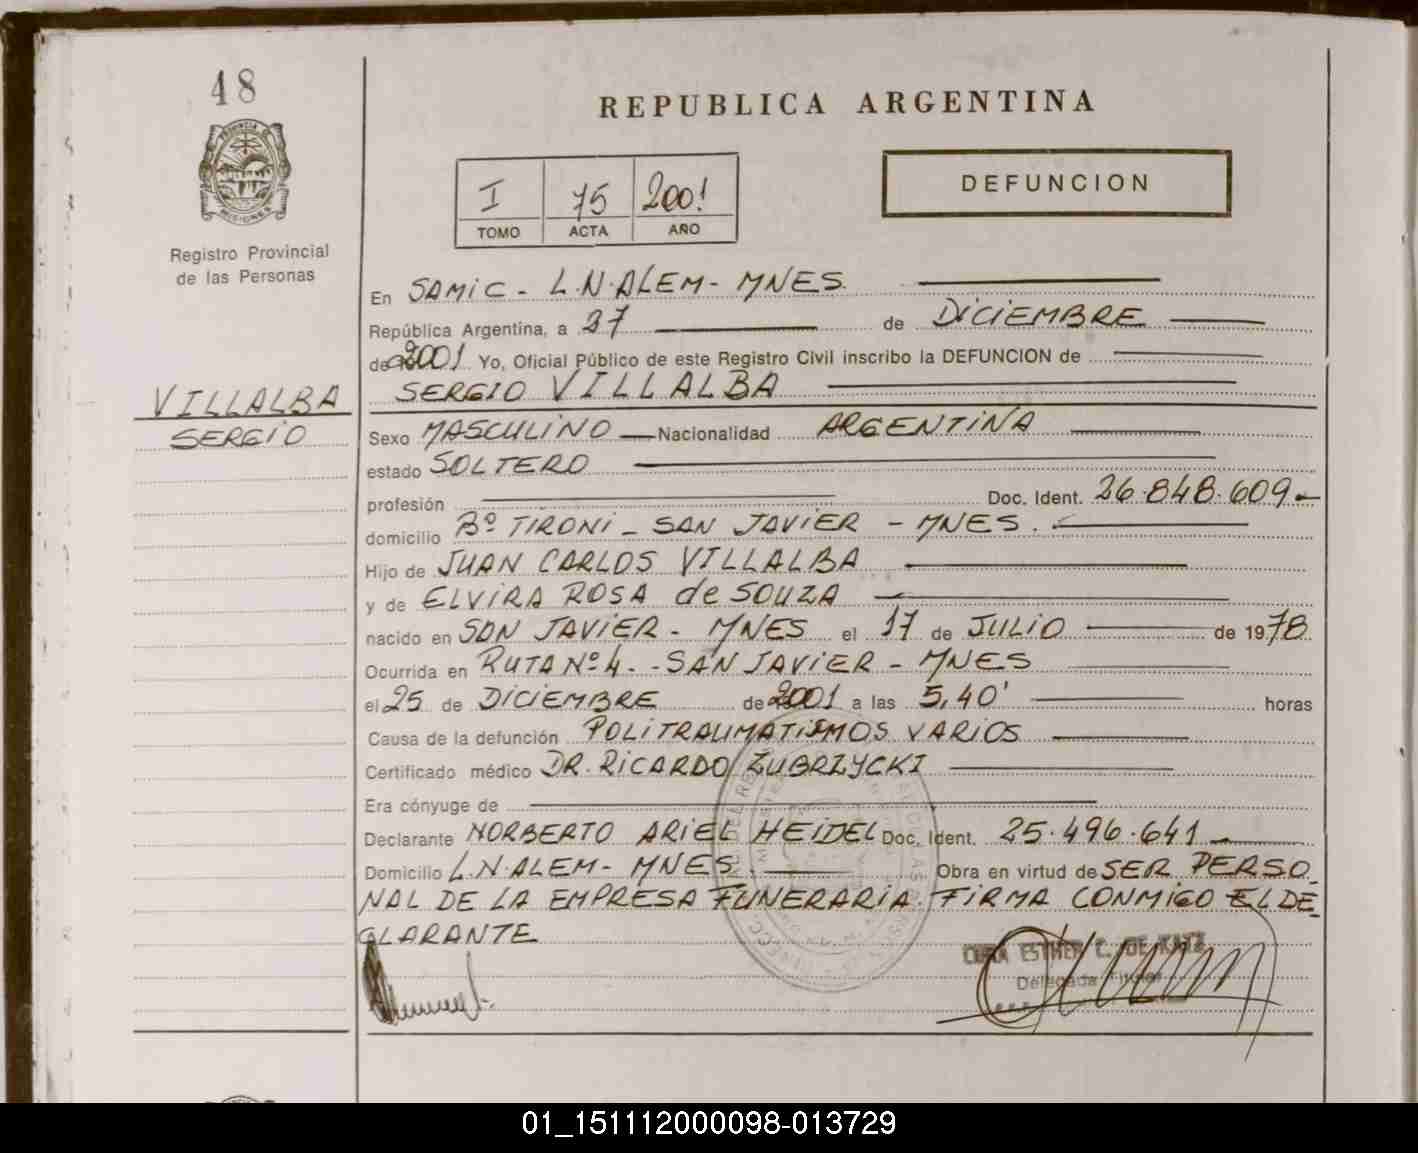 48
REPUBLICA ARGENTINA
PROVINCIA DE
MISIONES
I 75 2001
TOMO ACTA AÑO
DEFUNCION
Registro Provincial
de las Personas
En SAMIC - L.N.ALEM - MNES.
República Argentina, a 27 de DICIEMBRE
de 2001 Yo, Oficial Público de este Registro Civil inscribo la DEFUNCION de
SERGIO VILLALBA
VILLALBA
SERGIO
Sexo MASCULINO Nacionalidad ARGENTINA
estado SOLTERO
profesión Doc. Ident. 26.848.609.-
domicilio Bº TIRONI - SAN JAVIER - MNES.
Hijo de JUAN CARLOS VILLALBA
y de ELVIRA ROSA de SOUZA
nacido en SAN JAVIER - MNES el 17 de JULIO de 1978.
Ocurrida en RUTA Nº 4. - SAN JAVIER - MNES
el 25 de DICIEMBRE de 2001 a las 5,40' horas
Causa de la defunción POLITRAUMATISMOS VARIOS
Certificado médico DR. RICARDO ZUBRZYCKI
Era cónyuge de
Declarante NORBERTO ARIEL HEIDEL Doc. Ident. 25.496.641
Domicilio L.N.ALEM - MNES Obra en virtud de SER PERSO
NAL DE LA EMPRESA FUNERARIA. FIRMA CONMIGO EL DE
CLARANTE
ESTHER C. DE KATZ
Delegada Titular
01_151112000098-013729